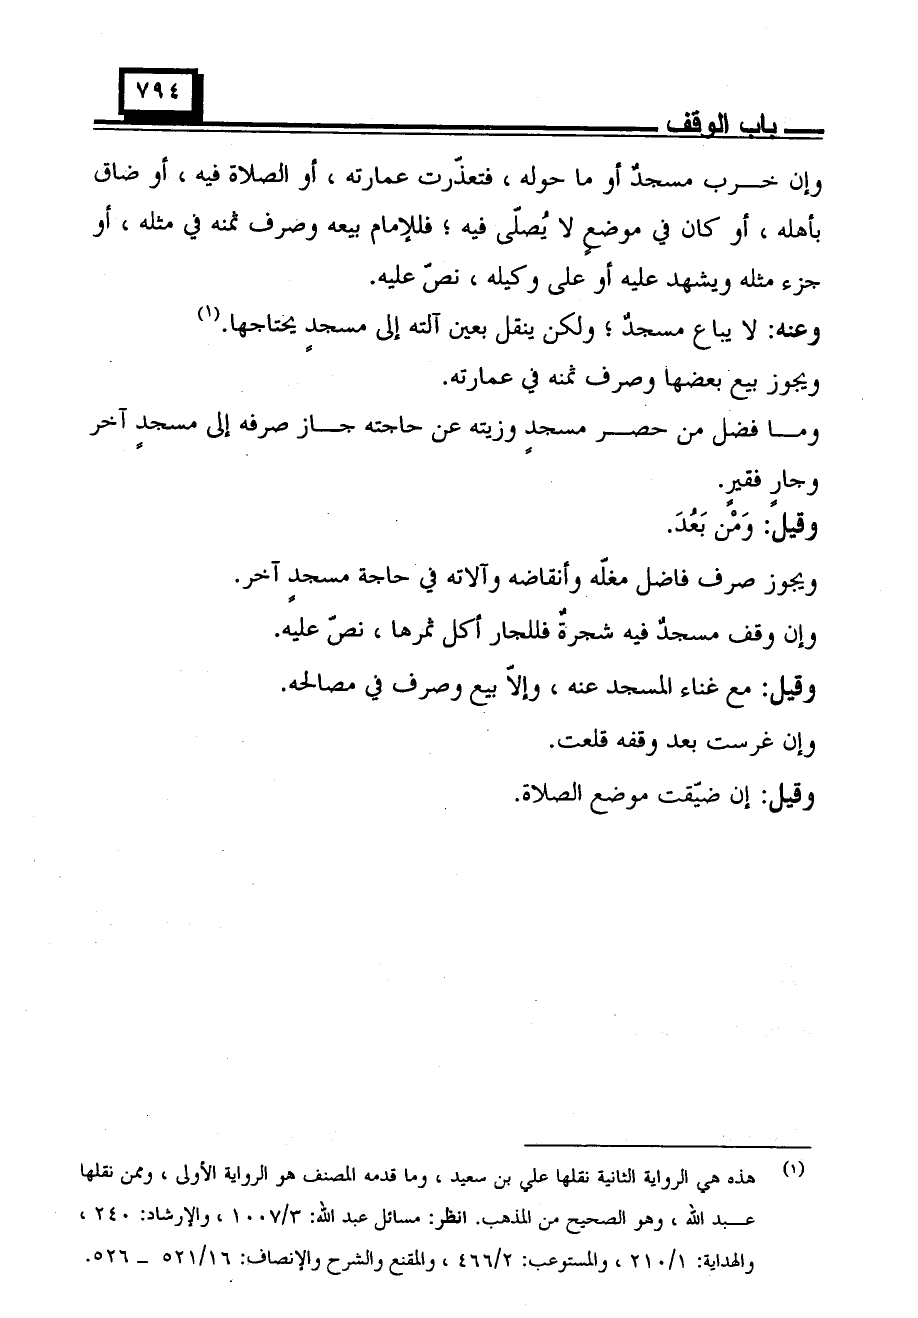 ٧٩٤
باب الوقف
وإن خرب مسجدٌ أو ما حوله ، فتعذّرت عمارته ، أو الصلاة فيه ، أو ضاق
بأهله ، أو كان في موضعٍ لا يُصلّى فيه ؛ فللإمام بيعه وصرف ثمنه في مثله ، أو
جزء مثله ويشهد عليه أو على وكيله ، نصّ عليه.
وعنه: لا يباع مسجدٌ ؛ ولكن ينقل بعين آلته إلى مسجدٍ يحتاجها.(١)
ويجوز بيع بعضها وصرف ثمنه في عمارته.
وما فضل من حصر مسجدٍ وزيته عن حاجته جاز صرفه إلى مسجدٍ آخر
وجارٍ فقيرٍ.
وقيل: وَمْن بَعُدَ.
ويجوز صرف فاضل مغلّه وأنقاضه وآلاته في حاجة مسجدٍ آخر.
وإن وقف مسجدٌ فيه شجرةٌ فللجار أكل ثمرها ، نصّ عليه.
وقيل: مع غناء المسجد عنه ، وإلاّ بيع وصرف في مصالحه.
وإن غرست بعد وقفه قلعت.
وقيل: إن ضيّقت موضع الصلاة.
(١) هذه هي الرواية الثانية نقلها علي بن سعيد ، وما قدمه المصنف هو الرواية الأولى ، وممن نقلها
عبد الله ، وهو الصحيح من المذهب. انظر: مسائل عبد الله: ١٠٠٧/٣ ، والإرشاد: ٢٤٠ ،
والهداية: ٢١٠/١ ، والمستوعب: ٤٦٦/٢ ، والمقنع والشرح والإنصاف: ٥٢١/١٦ _ ٥٢٦.